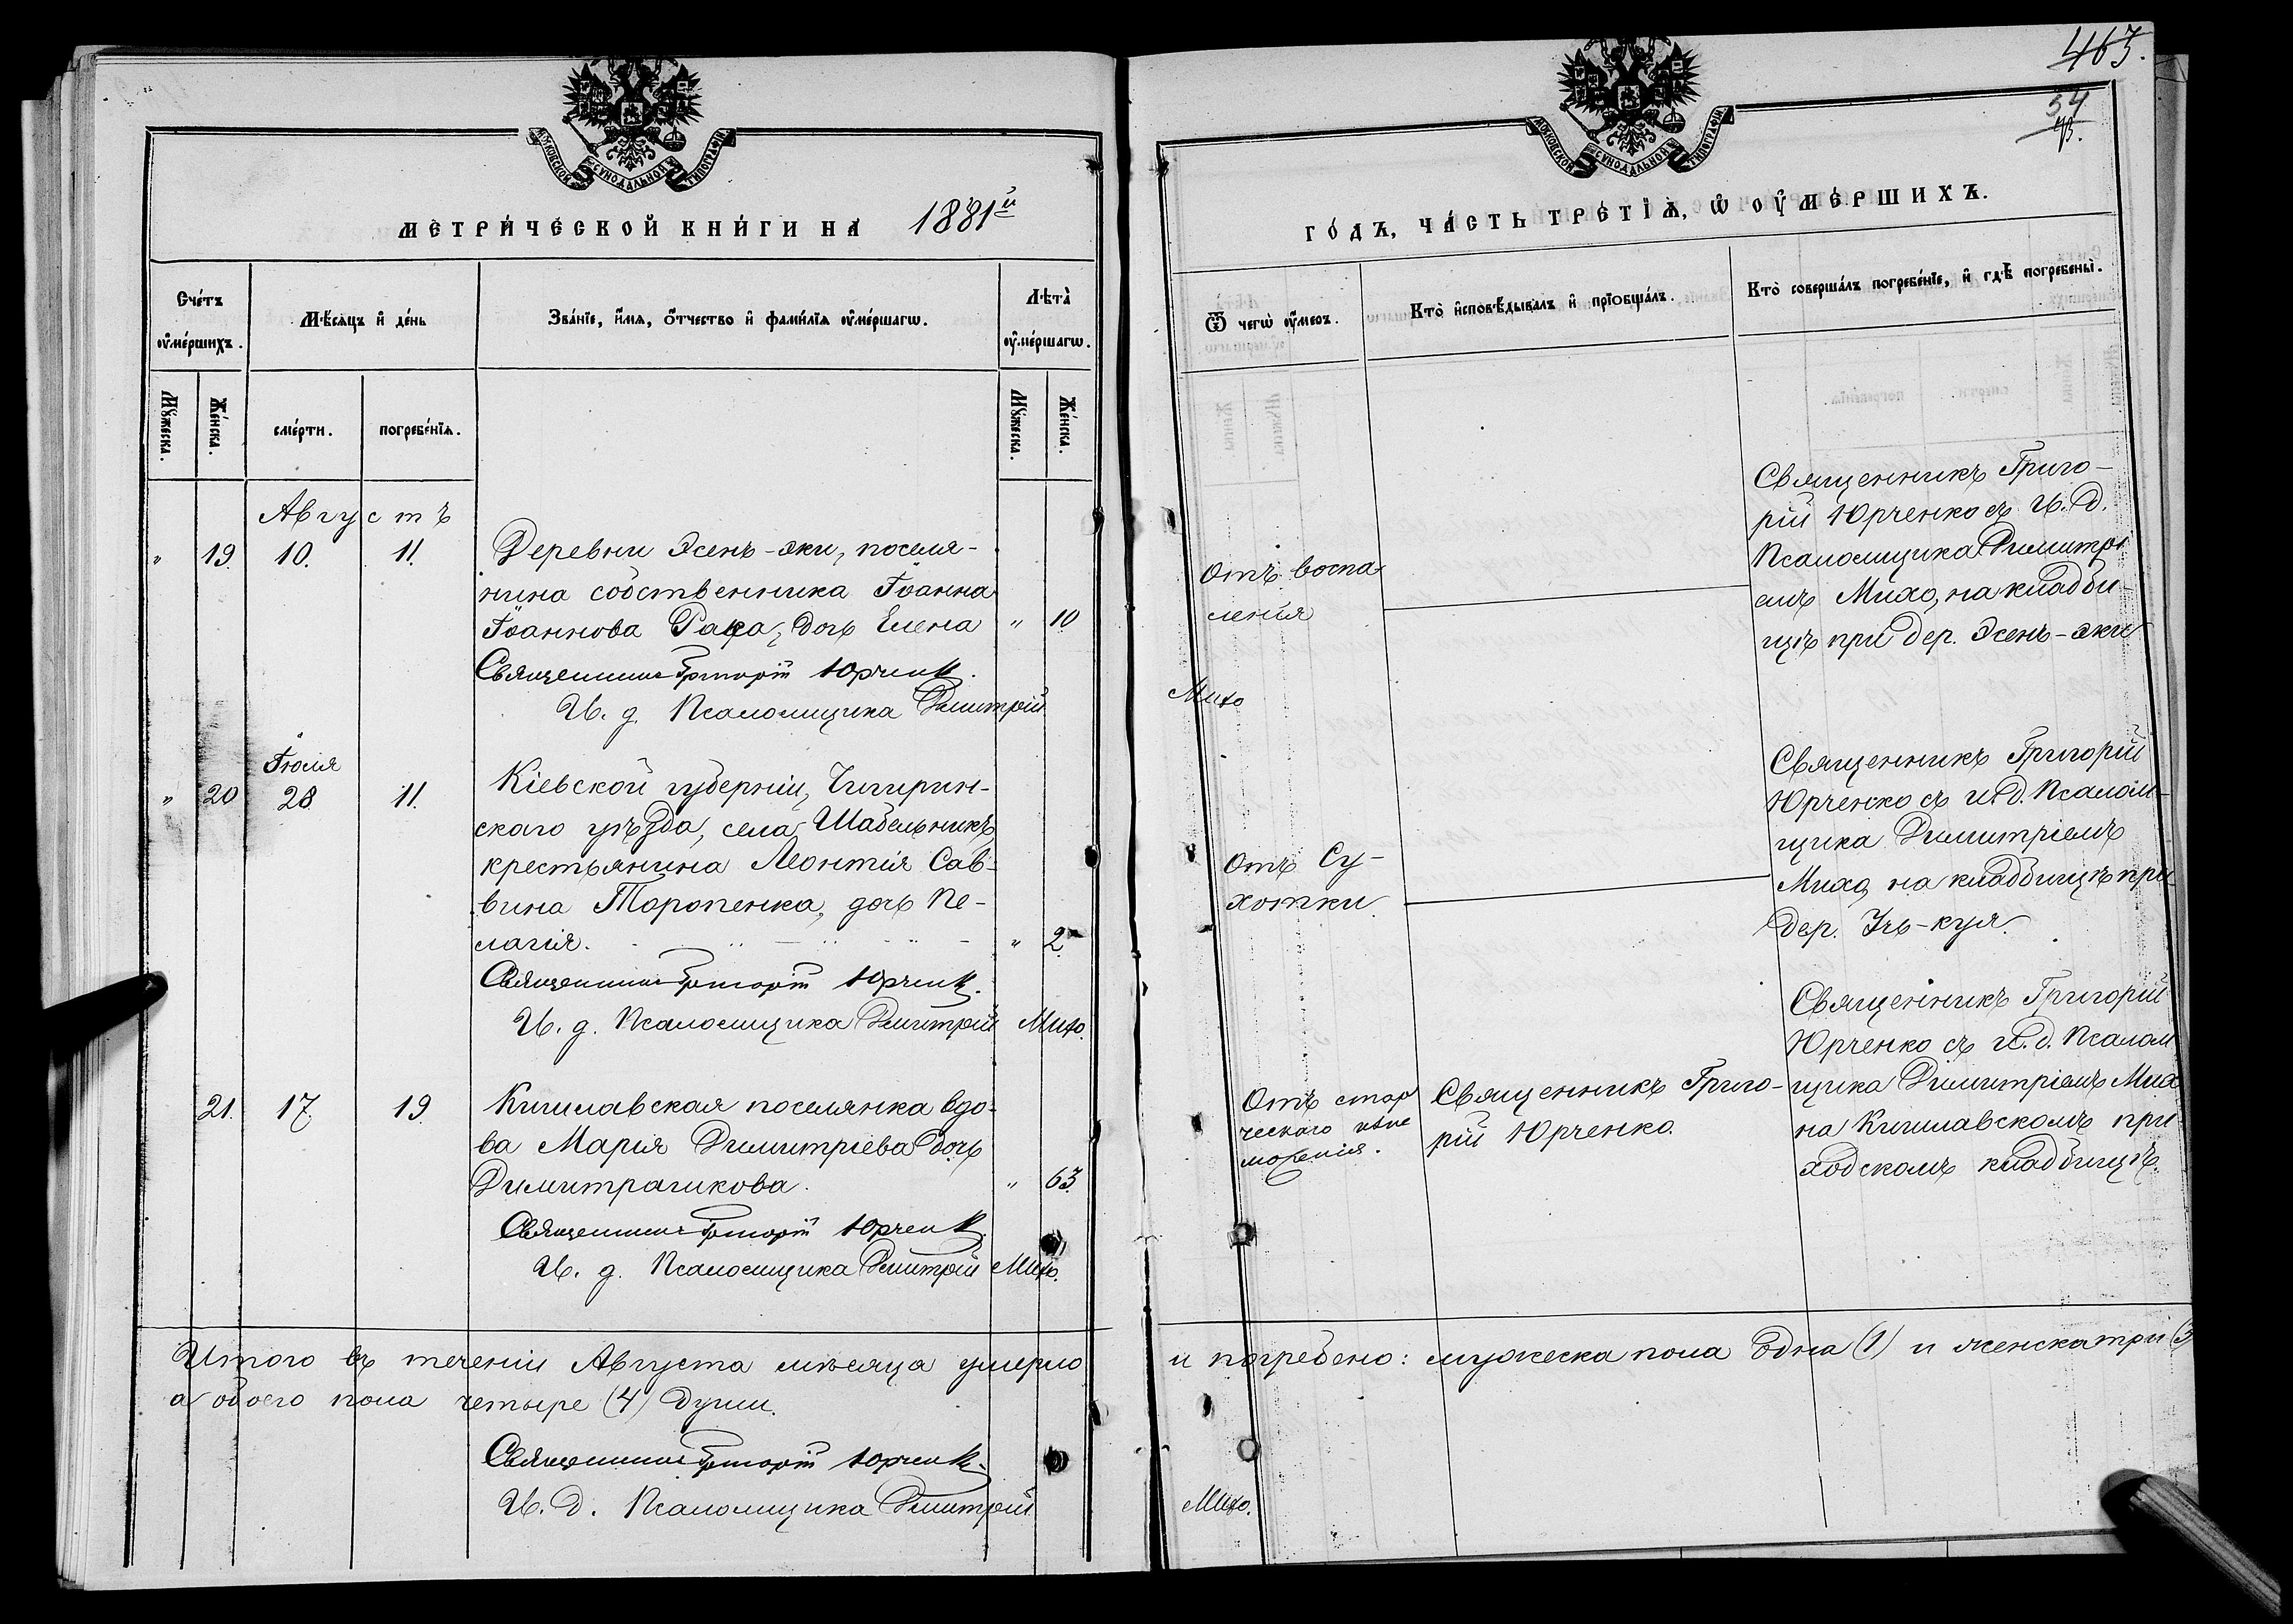 МОСКОВСКОЙ СѴНОДАЛЬНОЙ ТИПОГРАФІИ
МЕТРИ́ЧЕСКОЙ КНИ́ГИ НА 1881й
Сче́тъ ᲂу҆ме́ршихъ.
Мѣ́сяцъ и҆ де́нь
Зва́нїе, и҆́мѧ, ѻ҆́тчество и҆ фами́лїѧ ᲂу҆ме́ршагѡ.
Лѣта̀ ᲂу҆ме́ршагѡ.
Мꙋ́жеска.
Же́нска.
сме́рти.
погребе́нїѧ.
Мꙋ́жеска.
Же́нска.
Августъ
" 19. 10. 11. Деревни Эсенъ-эки, поселя-
нина собственника Іоанна
Іоаннова Раца, дочь Елена " 10
Священникъ Григорій Юрченко.
И. д. Псаломщика Димитрій Михо
Іюля
" 20 28 11. Кіевской губерніи, Чигирин-
скаго уѣзда, села Шабельникъ,
крестьянина Леонтія Сав-
вина Торопенка, дочь Пе-
лагія. " 2
Священникъ Григорій Юрченко.
И. д. Псаломщика Димитрій Михо.
21. 17 19. Кишлавская поселянка вдо-
ва Марія Димитріева дочь
Димитрашкова. " 63.
Священникъ Григорій Юрченко.
И. д. Псаломщика Димитрій Михо.
Итого въ теченіи Августа мѣсяца умерло
а обоего пола четыре (4) души.
Священникъ Григорій Юрченко.
И. д. Псаломщика Димитрій Михо.
463.
54
МОСКОВСКОЙ СѴНОДАЛЬНОЙ ТИПОГРАФІИ
ГО́ДЪ, ЧА́СТЬ ТРЕ́ТІѦ, Ѡ҆ ОУ҆МЕ́РШИХЪ.
Ѿ чегѡ̀ ᲂу҆́меръ.
Кто̀ и҆сповѣ́дывалъ и҆ прїѡбща́лъ.
Кто̀ соверша́лъ погребе́нїе, и҆ гдѣ̀ погребены̀.
Отъ воспа
ленія
Священникъ Григо-
рій Юрченко съ И. д.
Псаломщика Димитрі
емъ Михо, на кладби-
щѣ при дер. Эсенъ-эки
Отъ Су-
хотки.
Священникъ Григорій
Юрченко съ и. д. Псалом-
щика Димитріемъ
Михо, на кладбищѣ при
дер. Учь-куя.
Отъ стар
ческаго изне
моженія.
Священникъ Григо-
рій Юрченко.
Священникъ Григорій
Юрченко съ и. д. Псалом
щика Димитріемъ Михо
на Кишлавскомъ при
ходскомъ кладбищѣ.
и погребено: мужеска пола одна (1) и женска три (3)